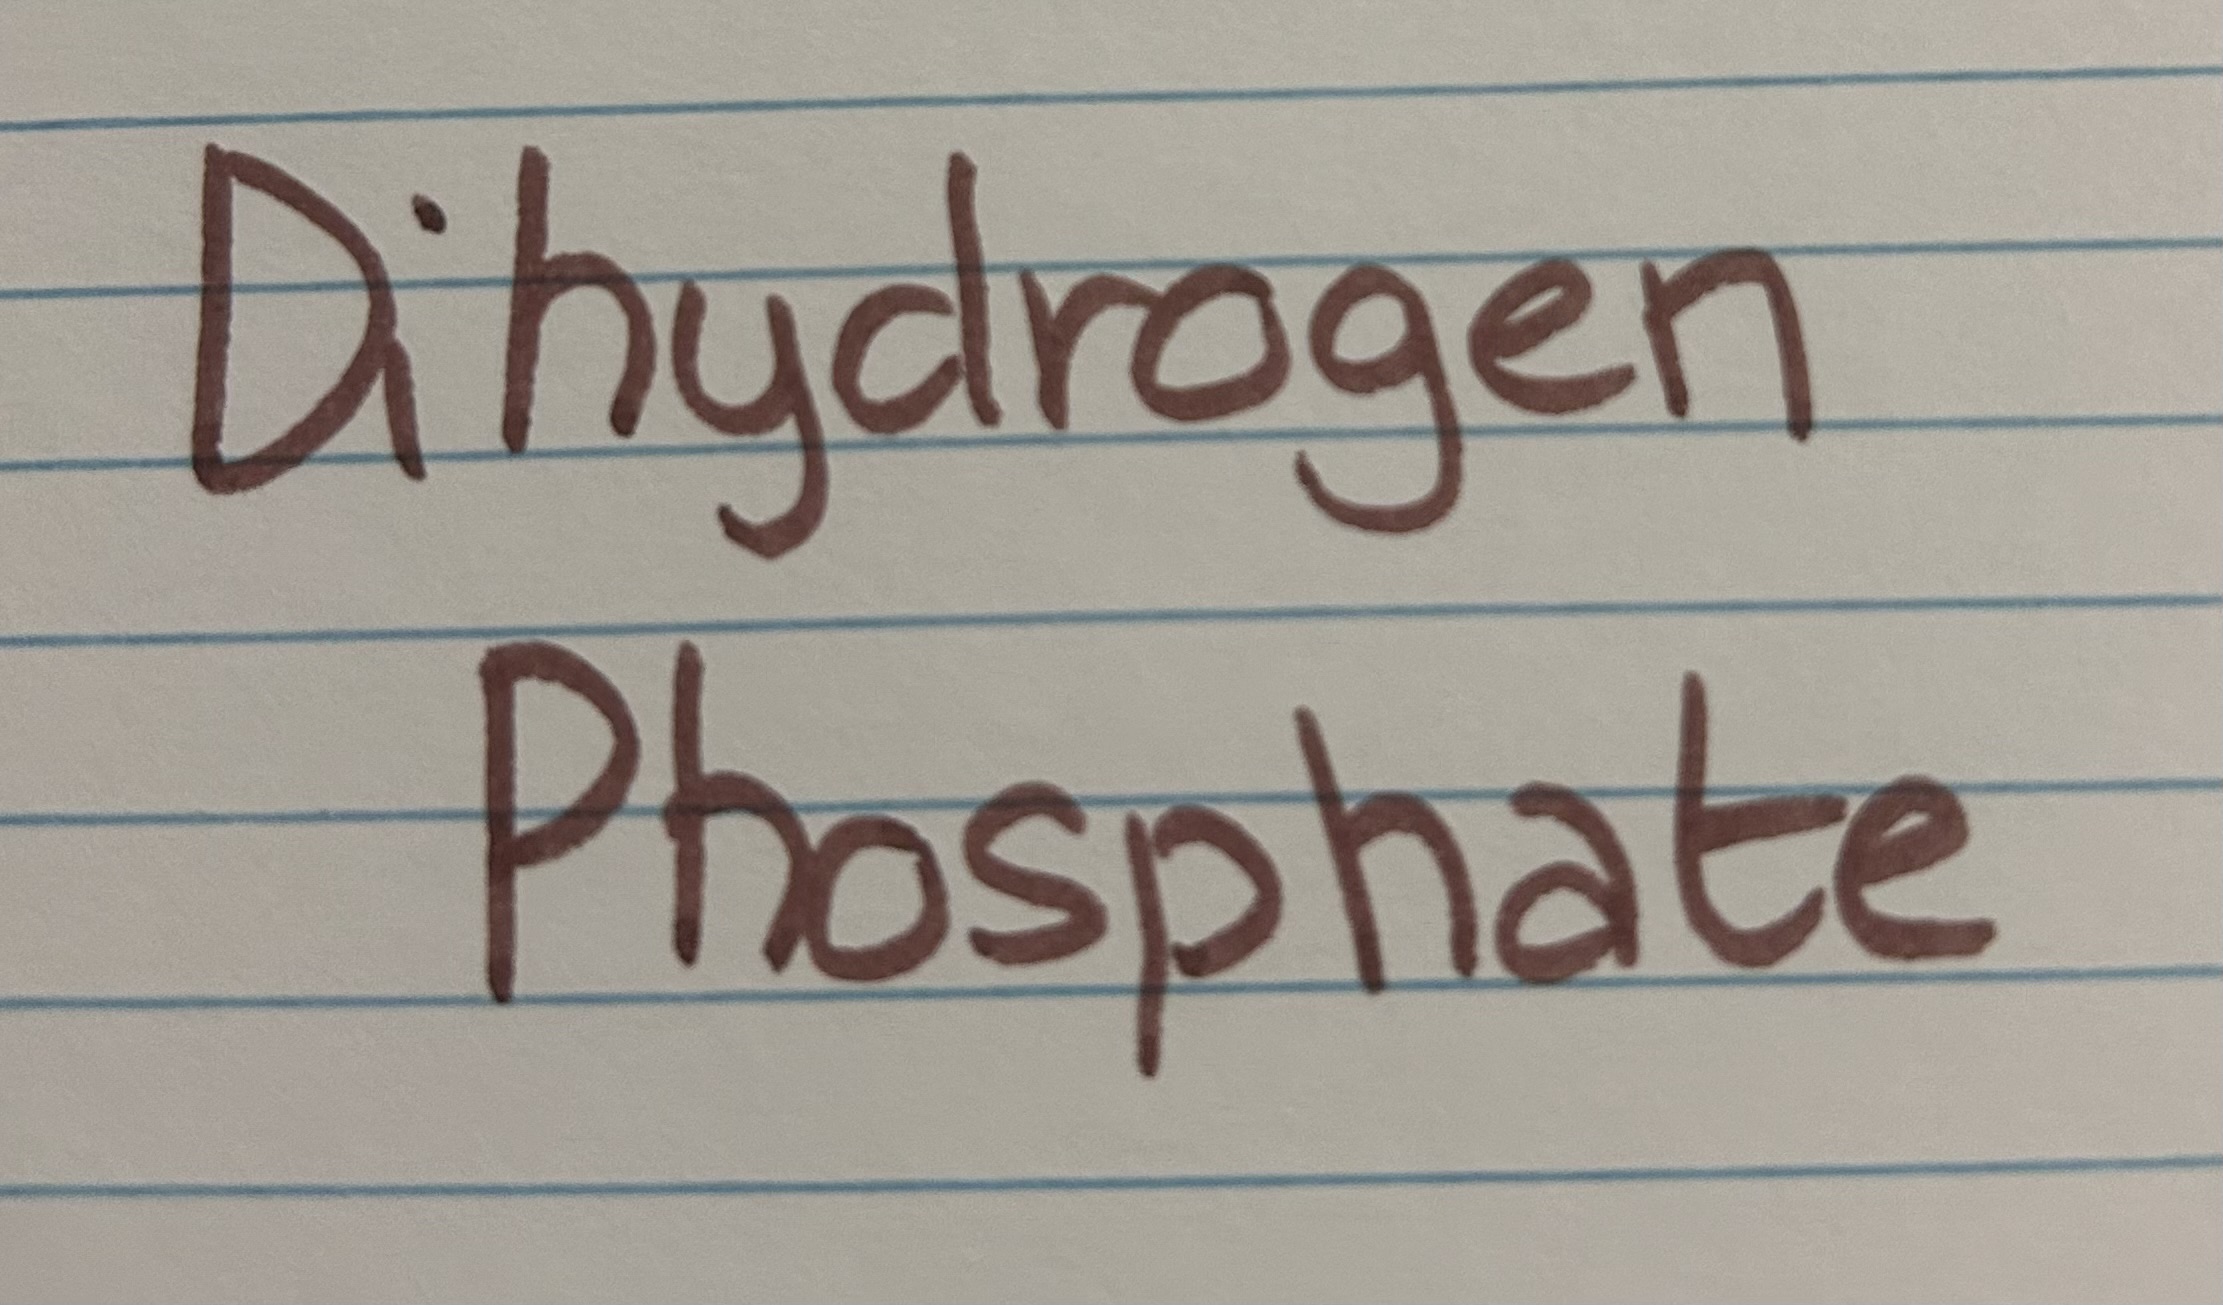 Dihydrogen
Phosphate